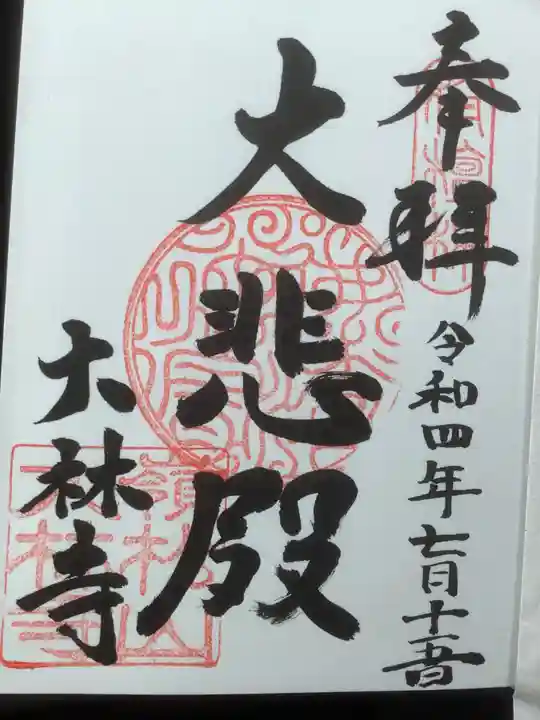 奉拜
令和四年七月十五日
大悲殿
大林寺